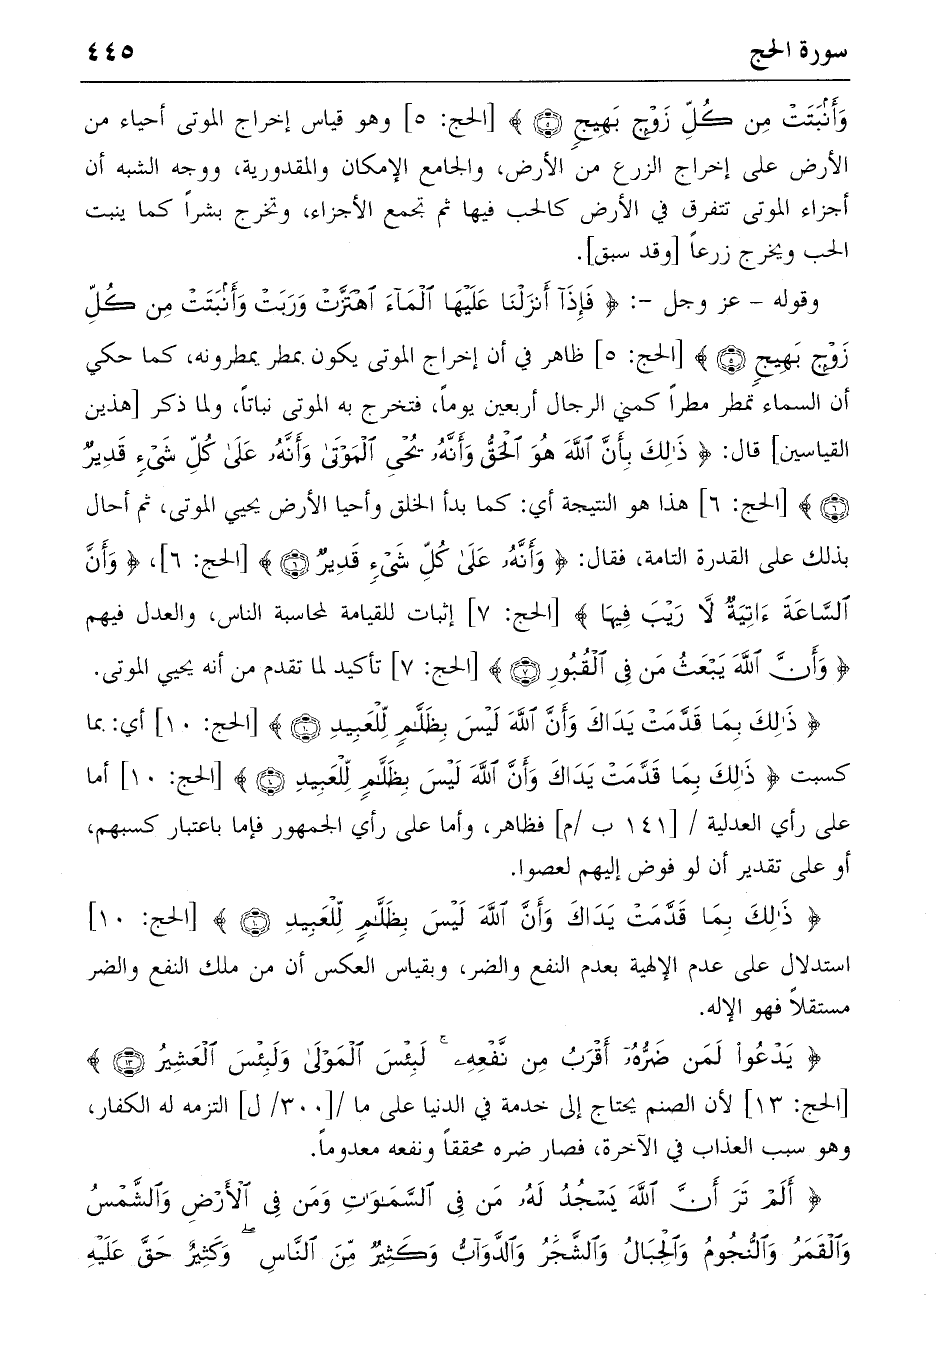 سورة الحج ٤٤٥
وَأَنۢبَتَتْ مِن كُلِّ زَوْجٍۭ بَهِيجٍ ۝٥ ﴾ [الحج: ٥] وهو قياس إخراج الموتى أحياء من
الأرض على إخراج الزرع من الأرض، والجامع الإمكان والمقدورية، ووجه الشبه أن
أجزاء الموتى تتفرق في الأرض كالحب فيها ثم تجمع الأجزاء، وتخرج بشراً كما ينبت
الحب ويخرج زرعاً [وقد سبق].
وقوله – عز وجل –: ﴿ فَإِذَآ أَنزَلْنَا عَلَيْهَا ٱلْمَآءَ ٱهْتَزَّتْ وَرَبَتْ وَأَنۢبَتَتْ مِن كُلِّ
زَوْجٍۭ بَهِيجٍ ۝٥ ﴾ [الحج: ٥] ظاهر في أن إخراج الموتى يكون بمطر يمطرونه، كما حكي
أن السماء تمطر مطراً كمني الرجال أربعين يوماً، فتخرج به الموتى نباتاً، ولما ذكر [هذين
القياسين] قال: ﴿ ذَٰلِكَ بِأَنَّ ٱللَّهَ هُوَ ٱلْحَقُّ وَأَنَّهُۥ يُحْىِ ٱلْمَوْتَىٰ وَأَنَّهُۥ عَلَىٰ كُلِّ شَىْءٍ قَدِيرٌ
۝٦ ﴾ [الحج: ٦] هذا هو النتيجة أي: كما بدأ الخلق وأحيا الأرض يحيي الموتى، ثم أحال
بذلك على القدرة التامة، فقال: ﴿ وَأَنَّهُۥ عَلَىٰ كُلِّ شَىْءٍ قَدِيرٌ ۝٦ ﴾ [الحج: ٦]، ﴿ وَأَنَّ
ٱلسَّاعَةَ ءَاتِيَةٌ لَّا رَيْبَ فِيهَا ﴾ [الحج: ٧] إثبات للقيامة لمحاسبة الناس، والعدل فيهم
﴿ وَأَنَّ ٱللَّهَ يَبْعَثُ مَن فِى ٱلْقُبُورِ ۝٧ ﴾ [الحج: ٧] تأكيد لما تقدم من أنه يحيي الموتى.
﴿ ذَٰلِكَ بِمَا قَدَّمَتْ يَدَاكَ وَأَنَّ ٱللَّهَ لَيْسَ بِظَلَّٰمٍ لِّلْعَبِيدِ ۝١٠ ﴾ [الحج: ١٠] أي: بما
كسبت ﴿ ذَٰلِكَ بِمَا قَدَّمَتْ يَدَاكَ وَأَنَّ ٱللَّهَ لَيْسَ بِظَلَّٰمٍ لِّلْعَبِيدِ ۝١٠ ﴾ [الحج: ١٠] أما
على رأي العدلية / [١٤١ ب /م] فظاهر، وأما على رأي الجمهور فإما باعتبار كسبهم،
أو على تقدير أن لو فوض إليهم لعصوا.
﴿ ذَٰلِكَ بِمَا قَدَّمَتْ يَدَاكَ وَأَنَّ ٱللَّهَ لَيْسَ بِظَلَّٰمٍ لِّلْعَبِيدِ ۝١٠ ﴾ [الحج: ١٠]
استدلال على عدم الإلهية بعدم النفع والضر، وبقياس العكس أن من ملك النفع والضر
مستقلاً فهو الإله.
﴿ يَدْعُوا۟ لَمَن ضَرُّهُۥٓ أَقْرَبُ مِن نَّفْعِهِۦ ۚ لَبِئْسَ ٱلْمَوْلَىٰ وَلَبِئْسَ ٱلْعَشِيرُ ۝١٣ ﴾
[الحج: ١٣] لأن الصنم يحتاج إلى خدمة في الدنيا على ما /[٣٠٠/ ل] التزمه له الكفار،
وهو سبب العذاب في الآخرة، فصار ضره محققاً ونفعه معدوماً.
﴿ أَلَمْ تَرَ أَنَّ ٱللَّهَ يَسْجُدُ لَهُۥ مَن فِى ٱلسَّمَٰوَٰتِ وَمَن فِى ٱلْأَرْضِ وَٱلشَّمْسُ
وَٱلْقَمَرُ وَٱلنُّجُومُ وَٱلْجِبَالُ وَٱلشَّجَرُ وَٱلدَّوَآبُّ وَكَثِيرٌ مِّنَ ٱلنَّاسِ ۖ وَكَثِيرٌ حَقَّ عَلَيْهِ